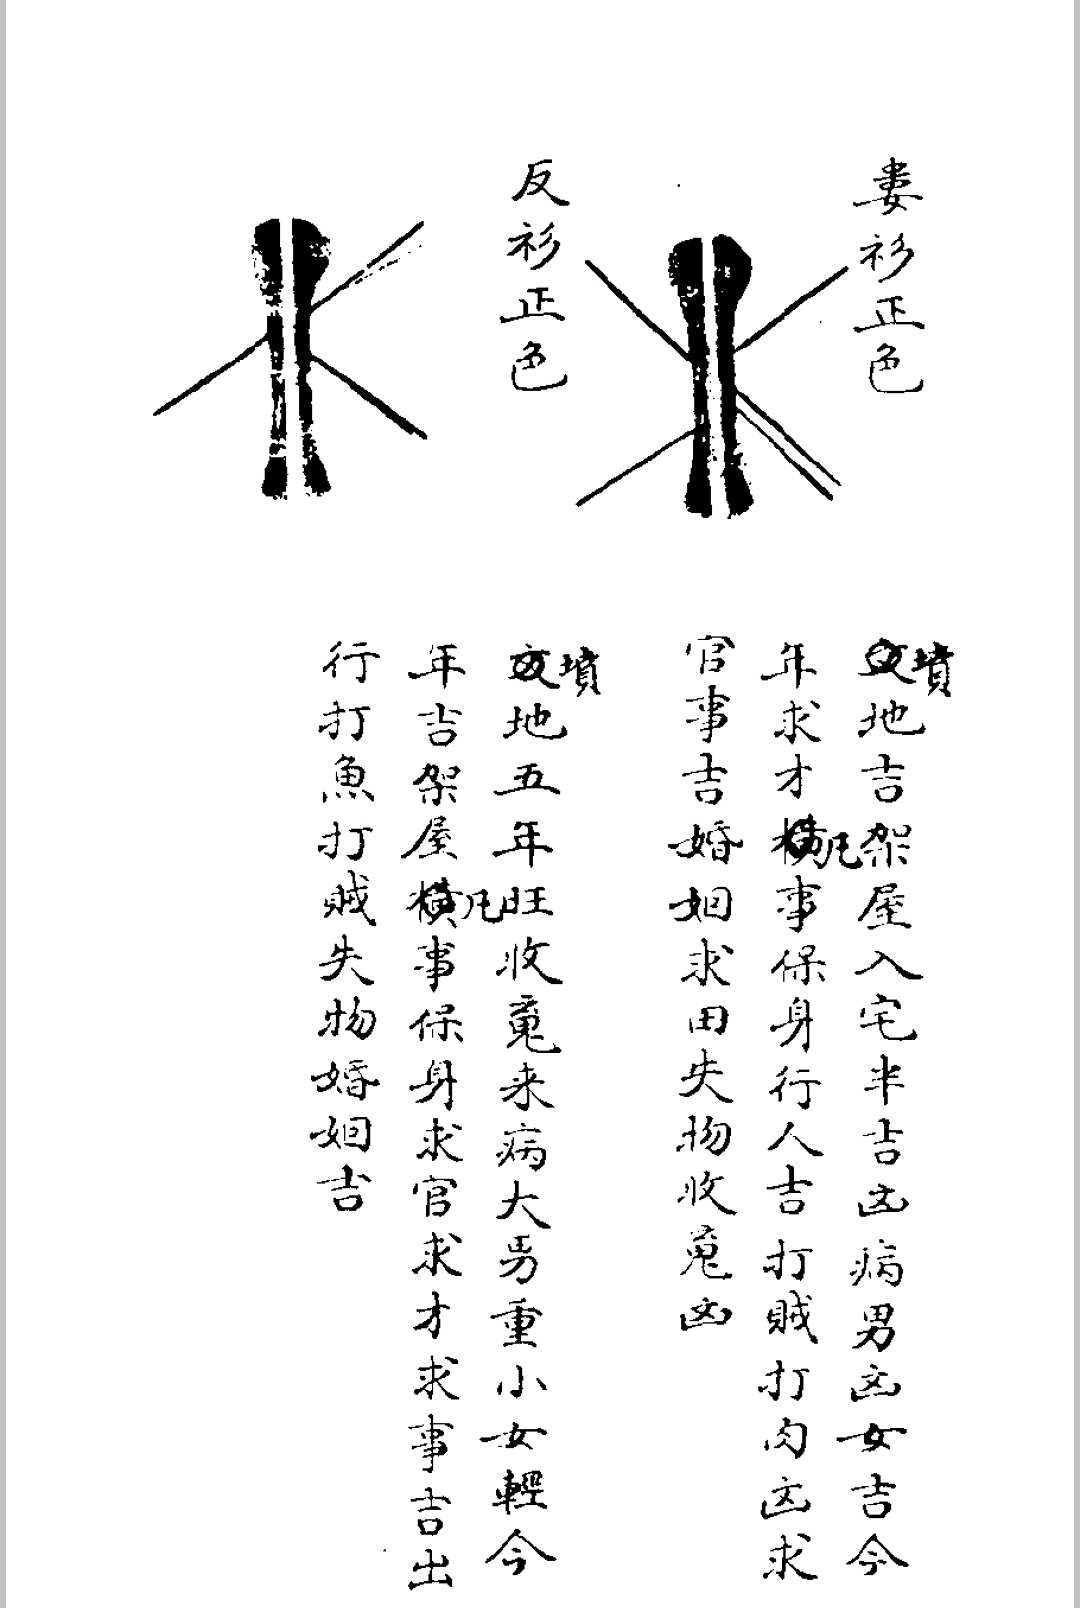 婁衫正色
墳地吉架屋入宅半吉凶病男凶女吉今
年求才凡事保身行人吉打賊打肉凶求
官事吉婚姻求田失物收蒐凶
反衫正色
墳地五年旺收蒐来病大男重小女輕今
年吉架屋凡事保身求官求才求事吉出
行打魚打賊失物婚姻吉